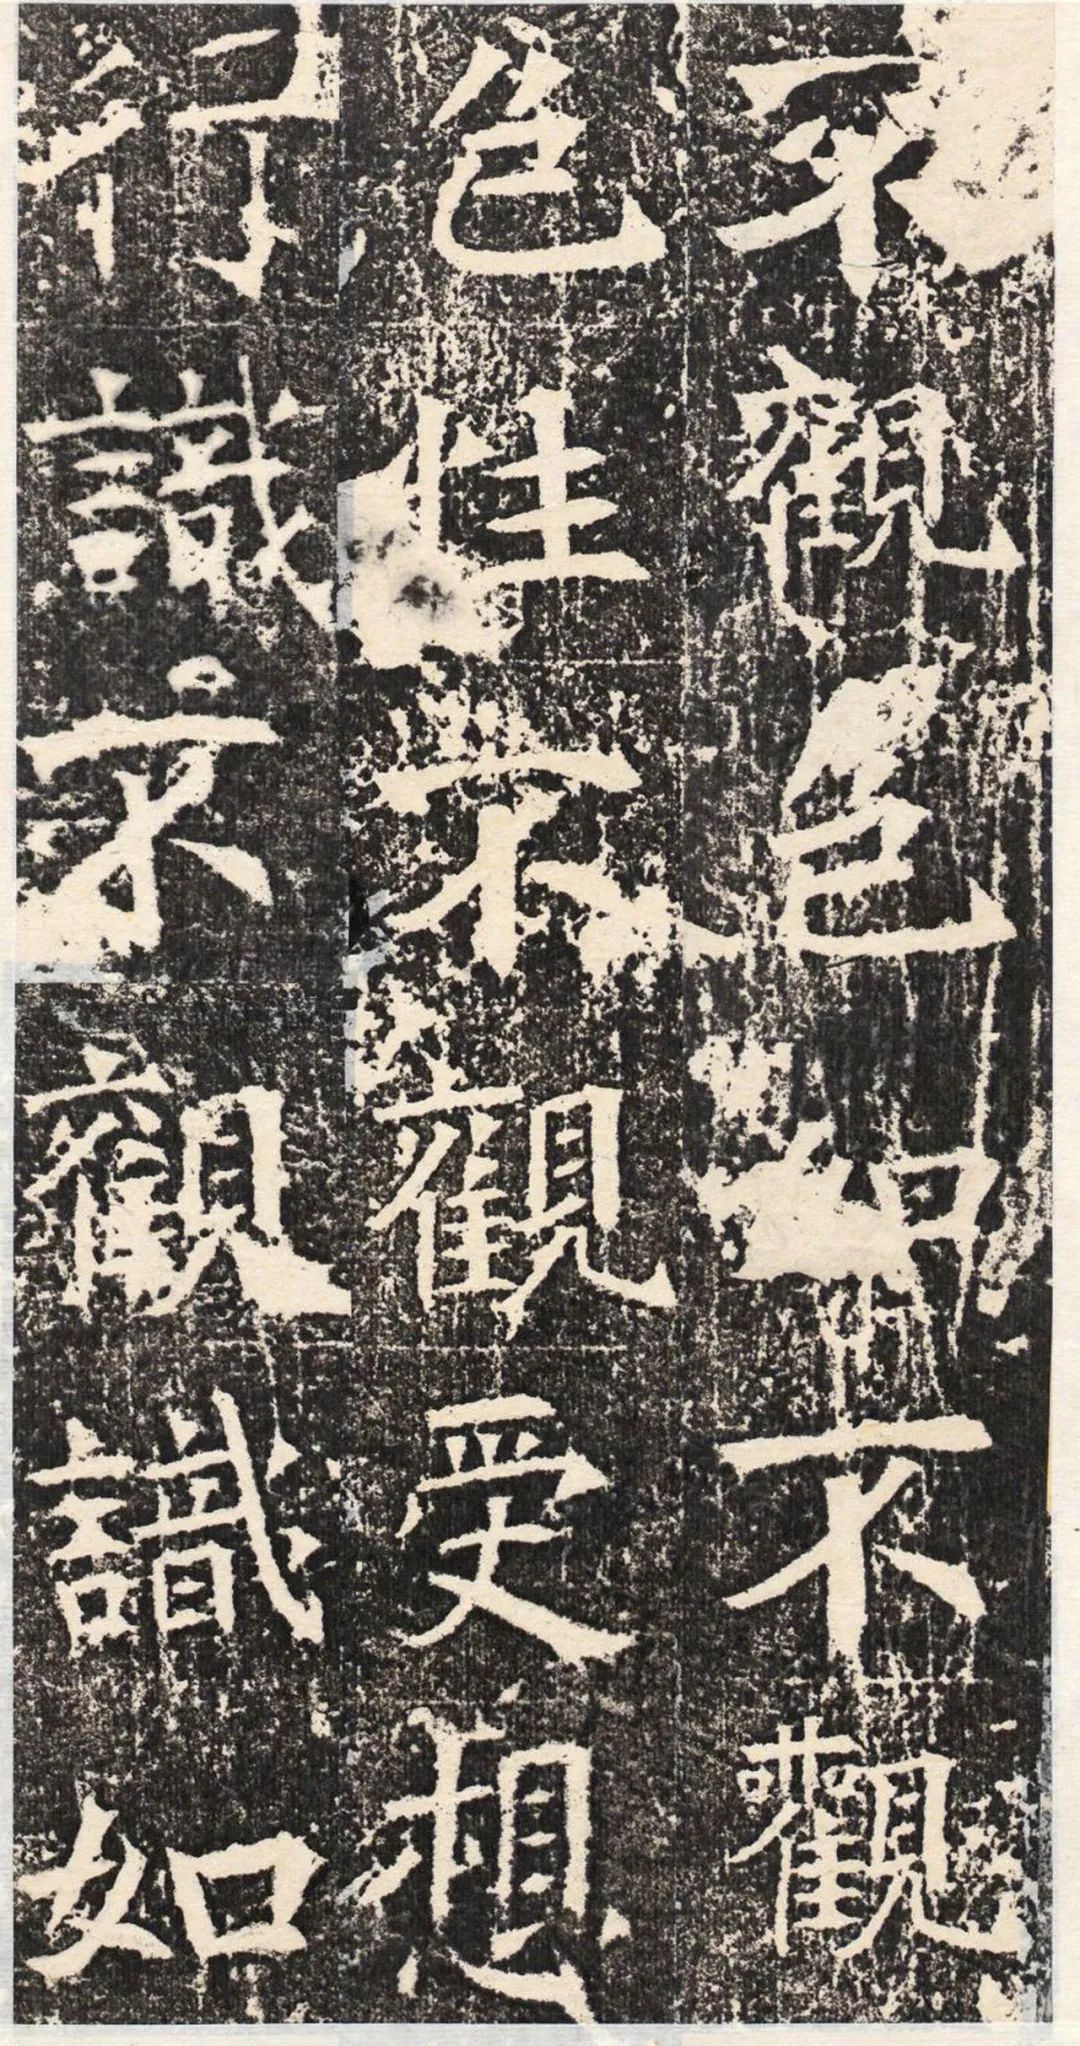 不觀色如不觀
色性不觀受想
行識不觀識如